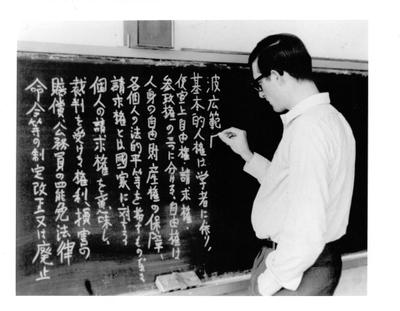 波広範
基本的人権は学者に依り、
便宜上自由権、請求権、
参政権の三に分ける。自由権は
人身の自由、財産権の保障、
各個人の法的平等を指すものである
請求権とは國家に対する
個人の請求権を意味し、
裁判を受ける権利、損害の
賠償、公務員の罷免、法律
命令等の制定改正又は廃止